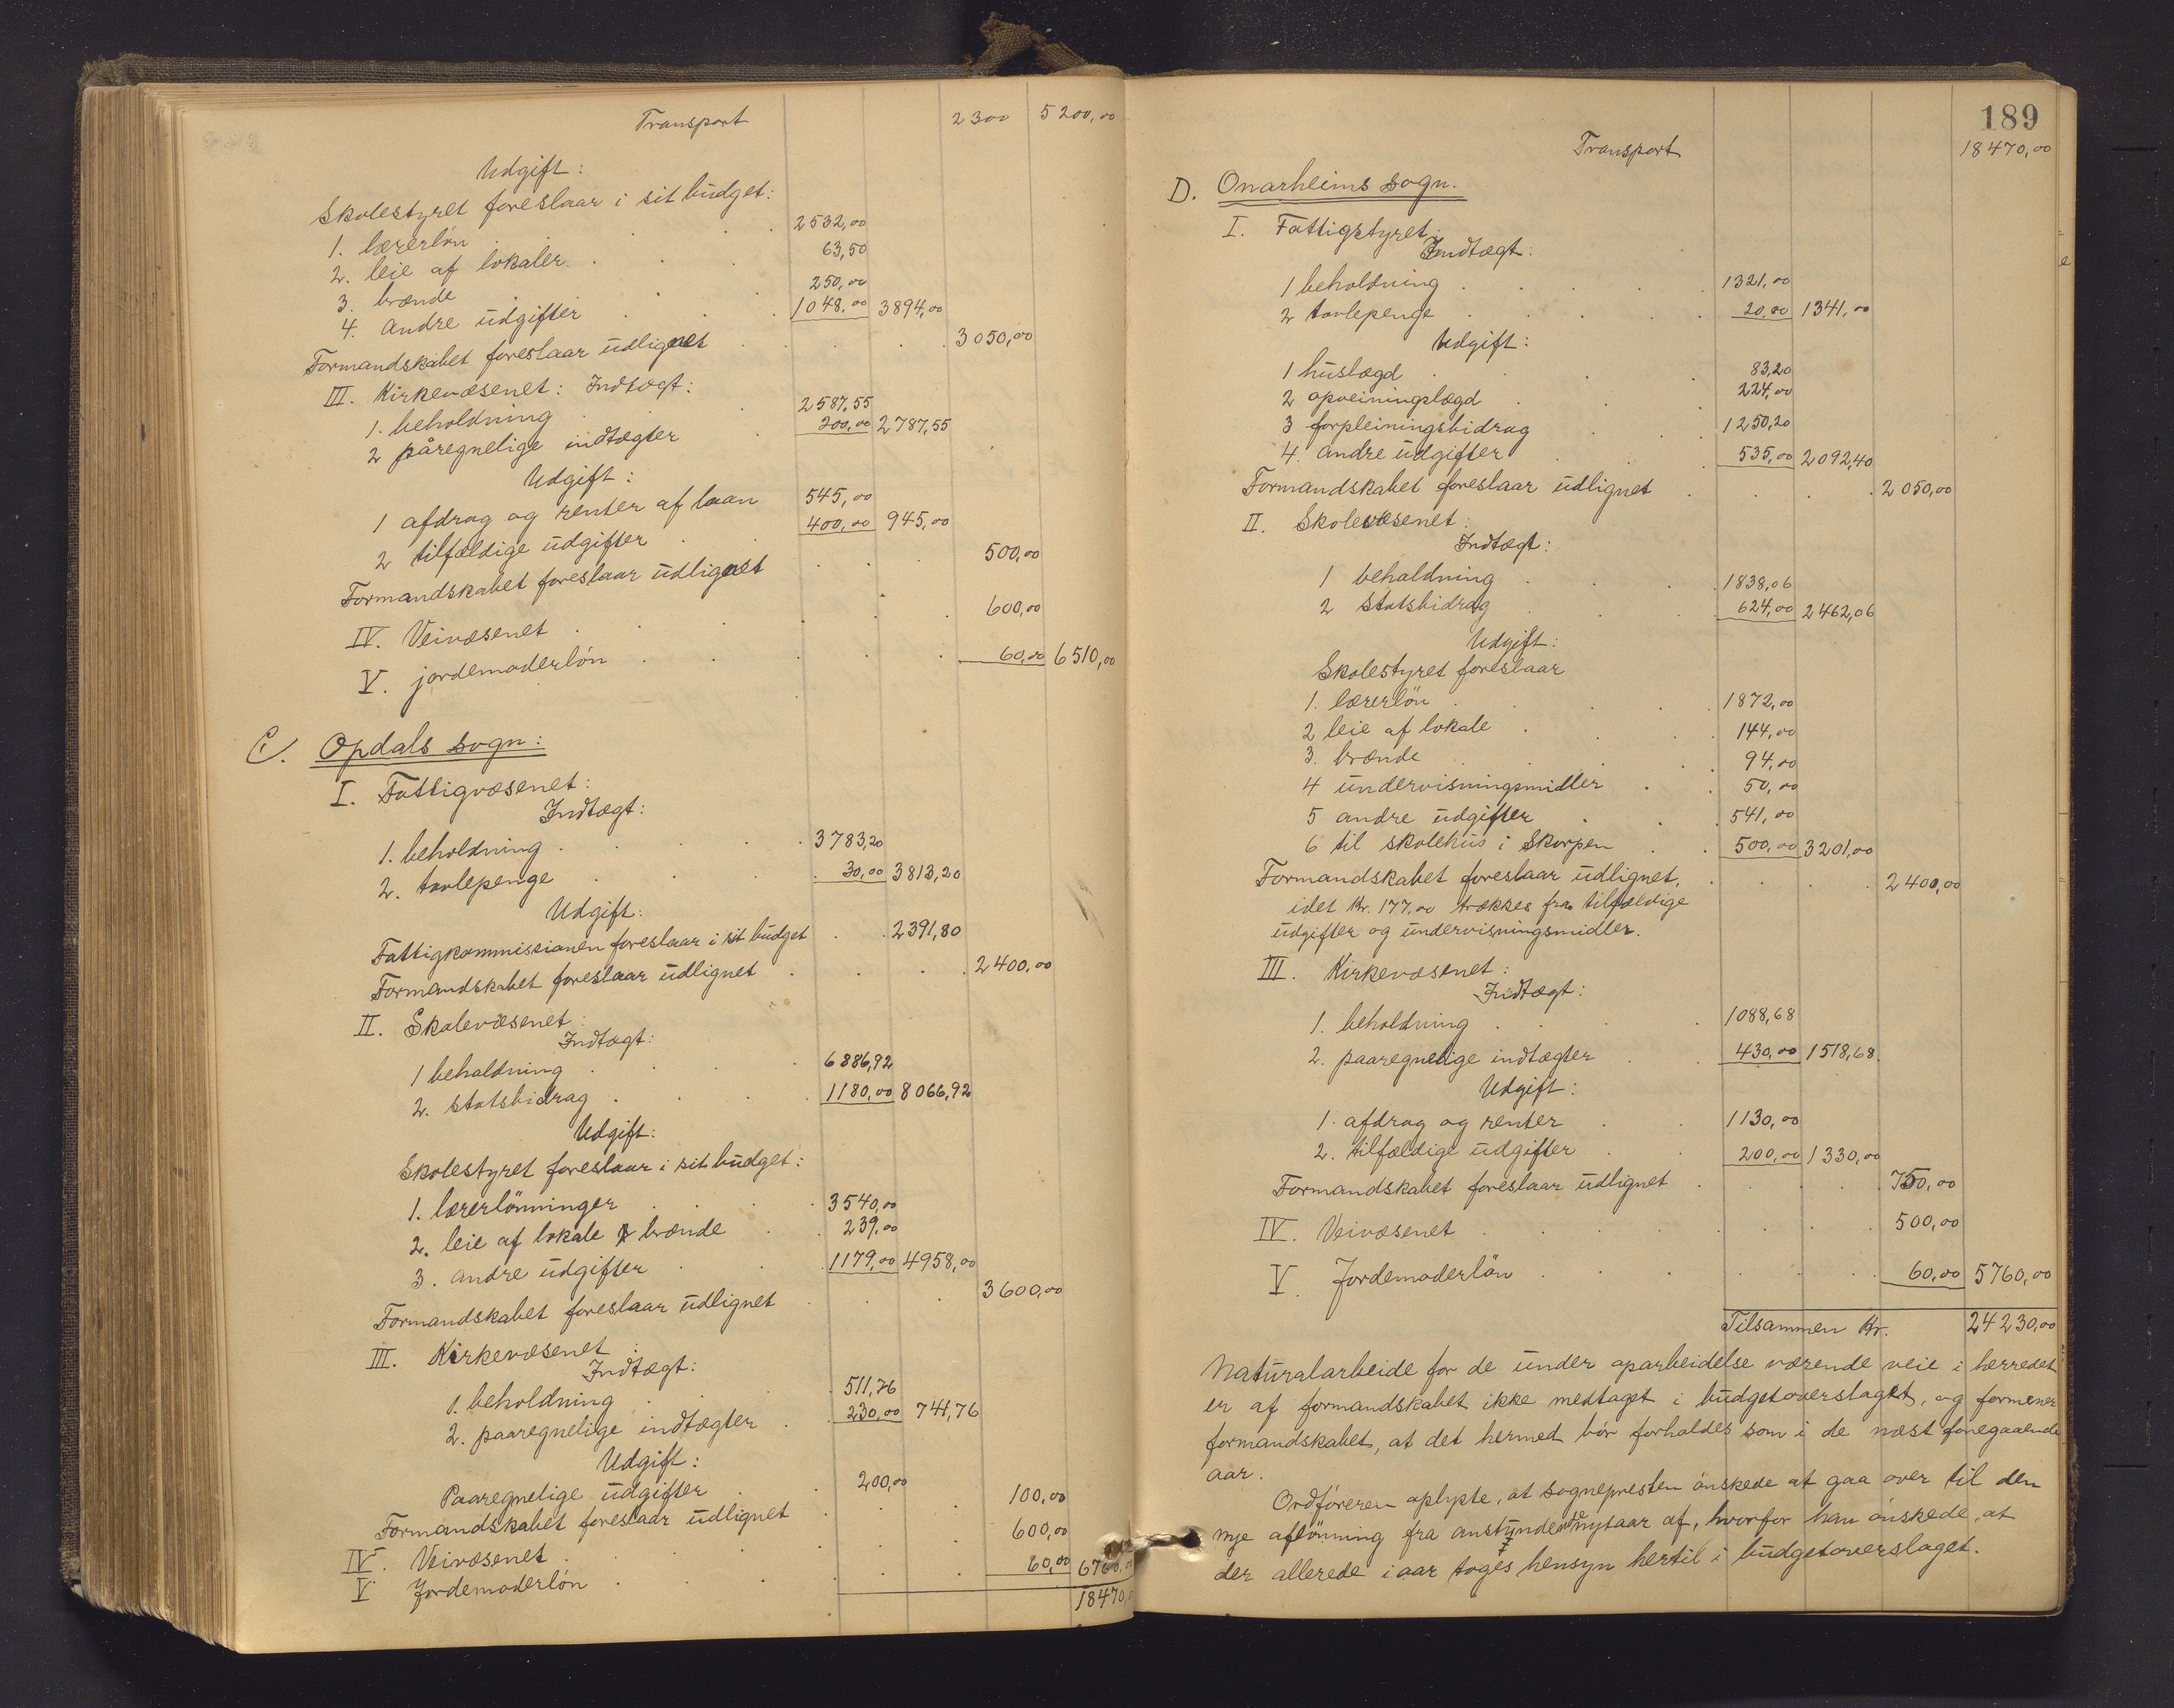 Transport 2300 5200,00
Udgift:
Skolestyret foreslaar i sit budget:
1. lærerløn 2532,00
2. leie af lokaler 63,50
3. brænde 250,00
4. andre udgifter 1048,00 3894,00
Formandskabet foreslaar udlignet 3050,00
III. Kirkevæsenet: Indtægt:
1. beholdning 2587,55
2 påregnelige indtægter 200,00 2787,55
Udgift:
1 afdrag og renter af laan 545,00
2 tilfældige udgifter 400,00 945,00
Formandskabet foreslaar udlignet 500,00
IV. Veivæsenet 600,00
V. jordemoderløn 60,00 6510,00
C. Opdals sogn:
I. Fattigvæsenet:
Indtægt:
1. beholdning 3783,20
2. tavlepenge 30,00 3813,20
Udgift:
Fattigkommissionen foreslaar i sit budget 2391,80
Formandskabet foreslaar udlignet 2400,00
II. Skolevæsenet
Indtægt:
1 beholdning 6886,92
2. statsbidrag 1180,00 8066,92
Udgift:
Skolestyret foreslaar i sit budget:
1. lærerlønninger 3540,00
2. leie af lokale & brænde 239,00
3. andre udgifter 1179,00 4958,00
Formandskabet foreslaar udlignet 3600,00
III. Kirkevæsenet:
Indtægt:
1. beholdning 511,76
2. paaregnelige indtægter 230,00 741,76
Udgift:
Paaregnelige udgifter 200,00
Formandskabet foreslaar udlignet 100,00
IV. Veivæsenet 600,00
V Jordemoderløn 60,00 6760,00
18470,00
189
Transport 18470,00
D. Onarheims sogn.
I. Fattigstyret:
Indtægt:
1 beholdning 1321,00
2 tavlepenge 20,00 1341,00
Udgift:
1 huslægd 83,20
2 opveiningslægd 224,00
3 forpleiningsbidrag 1250,20
4. andre udgifter 535,00 2092,40
Formandskabet foreslaar udlignet 2050,00
II. Skolevæsenet:
Indtægt:
1 beholdning 1838,06
2 statsbidrag 624,00 2462,06
Udgift:
Skolestyret foreslaar
1. lærerløn 1872,00
2 leie af lokale 144,00
3. brænde 94,00
4 undervisningsmidler 50,00
5 andre udgifter 541,00
6 til skolehus i Skorpen 500,00 3201,00
Formandskabet foreslaar udlignet, 2400,00
idet Kr. 177,00 trækkes fra tilfældige
udgifter og undervisningsmidler.
III. Kirkevæsenet:
Indtægt:
1. beholdning 1088,68
2. paaregnelige indtægter 430,00 1518,68.
Udgift:
1. afdrag og renter 1130,00
2. tilfældige udgifter 200,00 1330,00
Formandskabet foreslaar udlignet 750,00
IV. Veivæsenet 500,00
V Jordemoderløn 60,00 5760,00
Tilsammen Kr. 24230,00
Naturalarbeide for de under oparbeidelse værende veie i herredet
er af formandskabet ikke medtaget i budgetoverslaget, og formener
formandskabet, at det hermed bør forholdes som i de næst foregaaende
aar.
Ordføreren oplyste, at sognepresten ønskede at gaa over til den
nye aflønning fra anstundende nytaar af, hvorfor han ønskede, at
der allerede i aar toges hensyn hertil i budgetoverslaget.